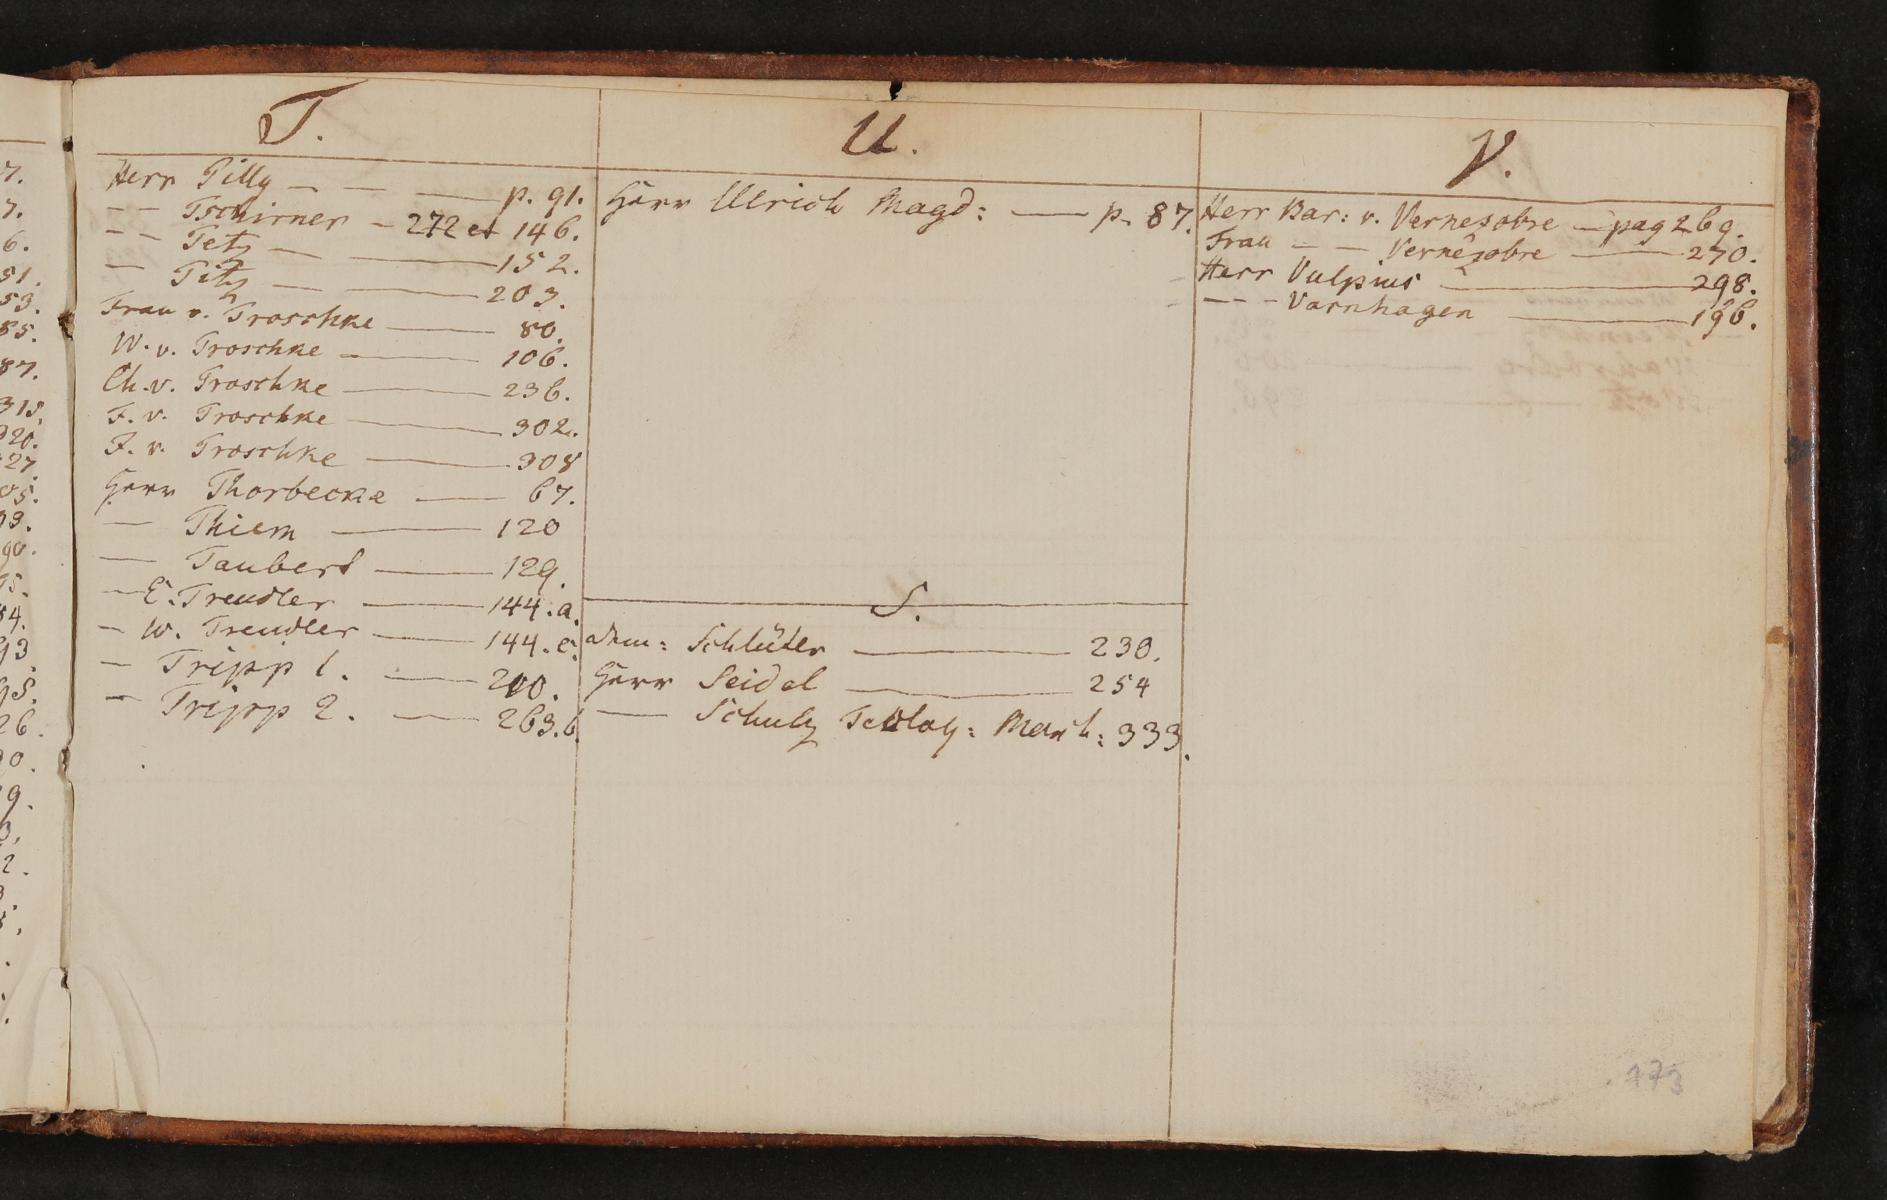 T.
Herr Tilly — — — p. 91.
— — Tschirner — 272 et 146.
— — Tetz — — 152.
— Titz — — 203.
Frau v. Troschke — 80.
W. v. Troschke — 106.
Ch. v. Troschke — 236.
F. v. Troschke — 302.
F. v. Troschke — 308
Herr Thorbecke — 67.
— Thiem — 120
— Taubert — 129.
— E. Treudler — 144. a.
— W. Treudler — 144. c.
— Tripp 1. — 200.
— Tripp 2. — 263. b.
U.
Herr Ulrich Magd: — p. 87.
S.
Dem: Schlüter — 230.
Herr Seidel — 254
— Schulz March: 333.
V.
Herr Bar: v. Vernezobre — pag 269.
Frau — — Vernezobre — 270.
Herr Vulpius — 298.
— — — Varnhagen — 196.
173